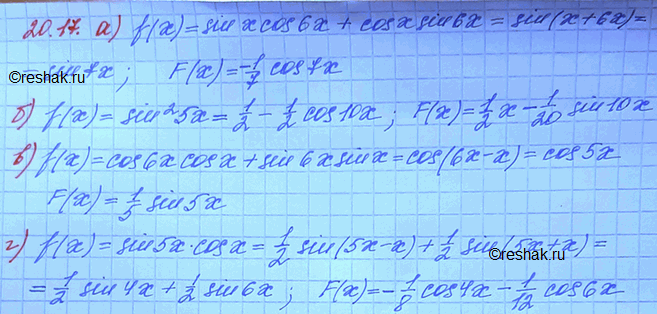 20.17. а) f(x) = sin x cos 6x + cos x sin 6x = sin(x+6x) =
= sin 7x ; F(x) = -1/7 cos 7x
©reshak.ru
б) f(x) = sin²5x = 1/2 - 1/2 cos 10x ; F(x) = 1/2 x - 1/20 sin 10x
в) f(x) = cos 6x cos x + sin 6x sin x = cos(6x-x) = cos 5x
F(x) = 1/5 sin 5x
г) f(x) = sin 5x · cos x = 1/2 sin(5x-x) + 1/2 sin(5x+x) =
= 1/2 sin 4x + 1/2 sin 6x ; F(x) = -1/8 cos 4x - 1/12 cos 6x
©reshak.ru